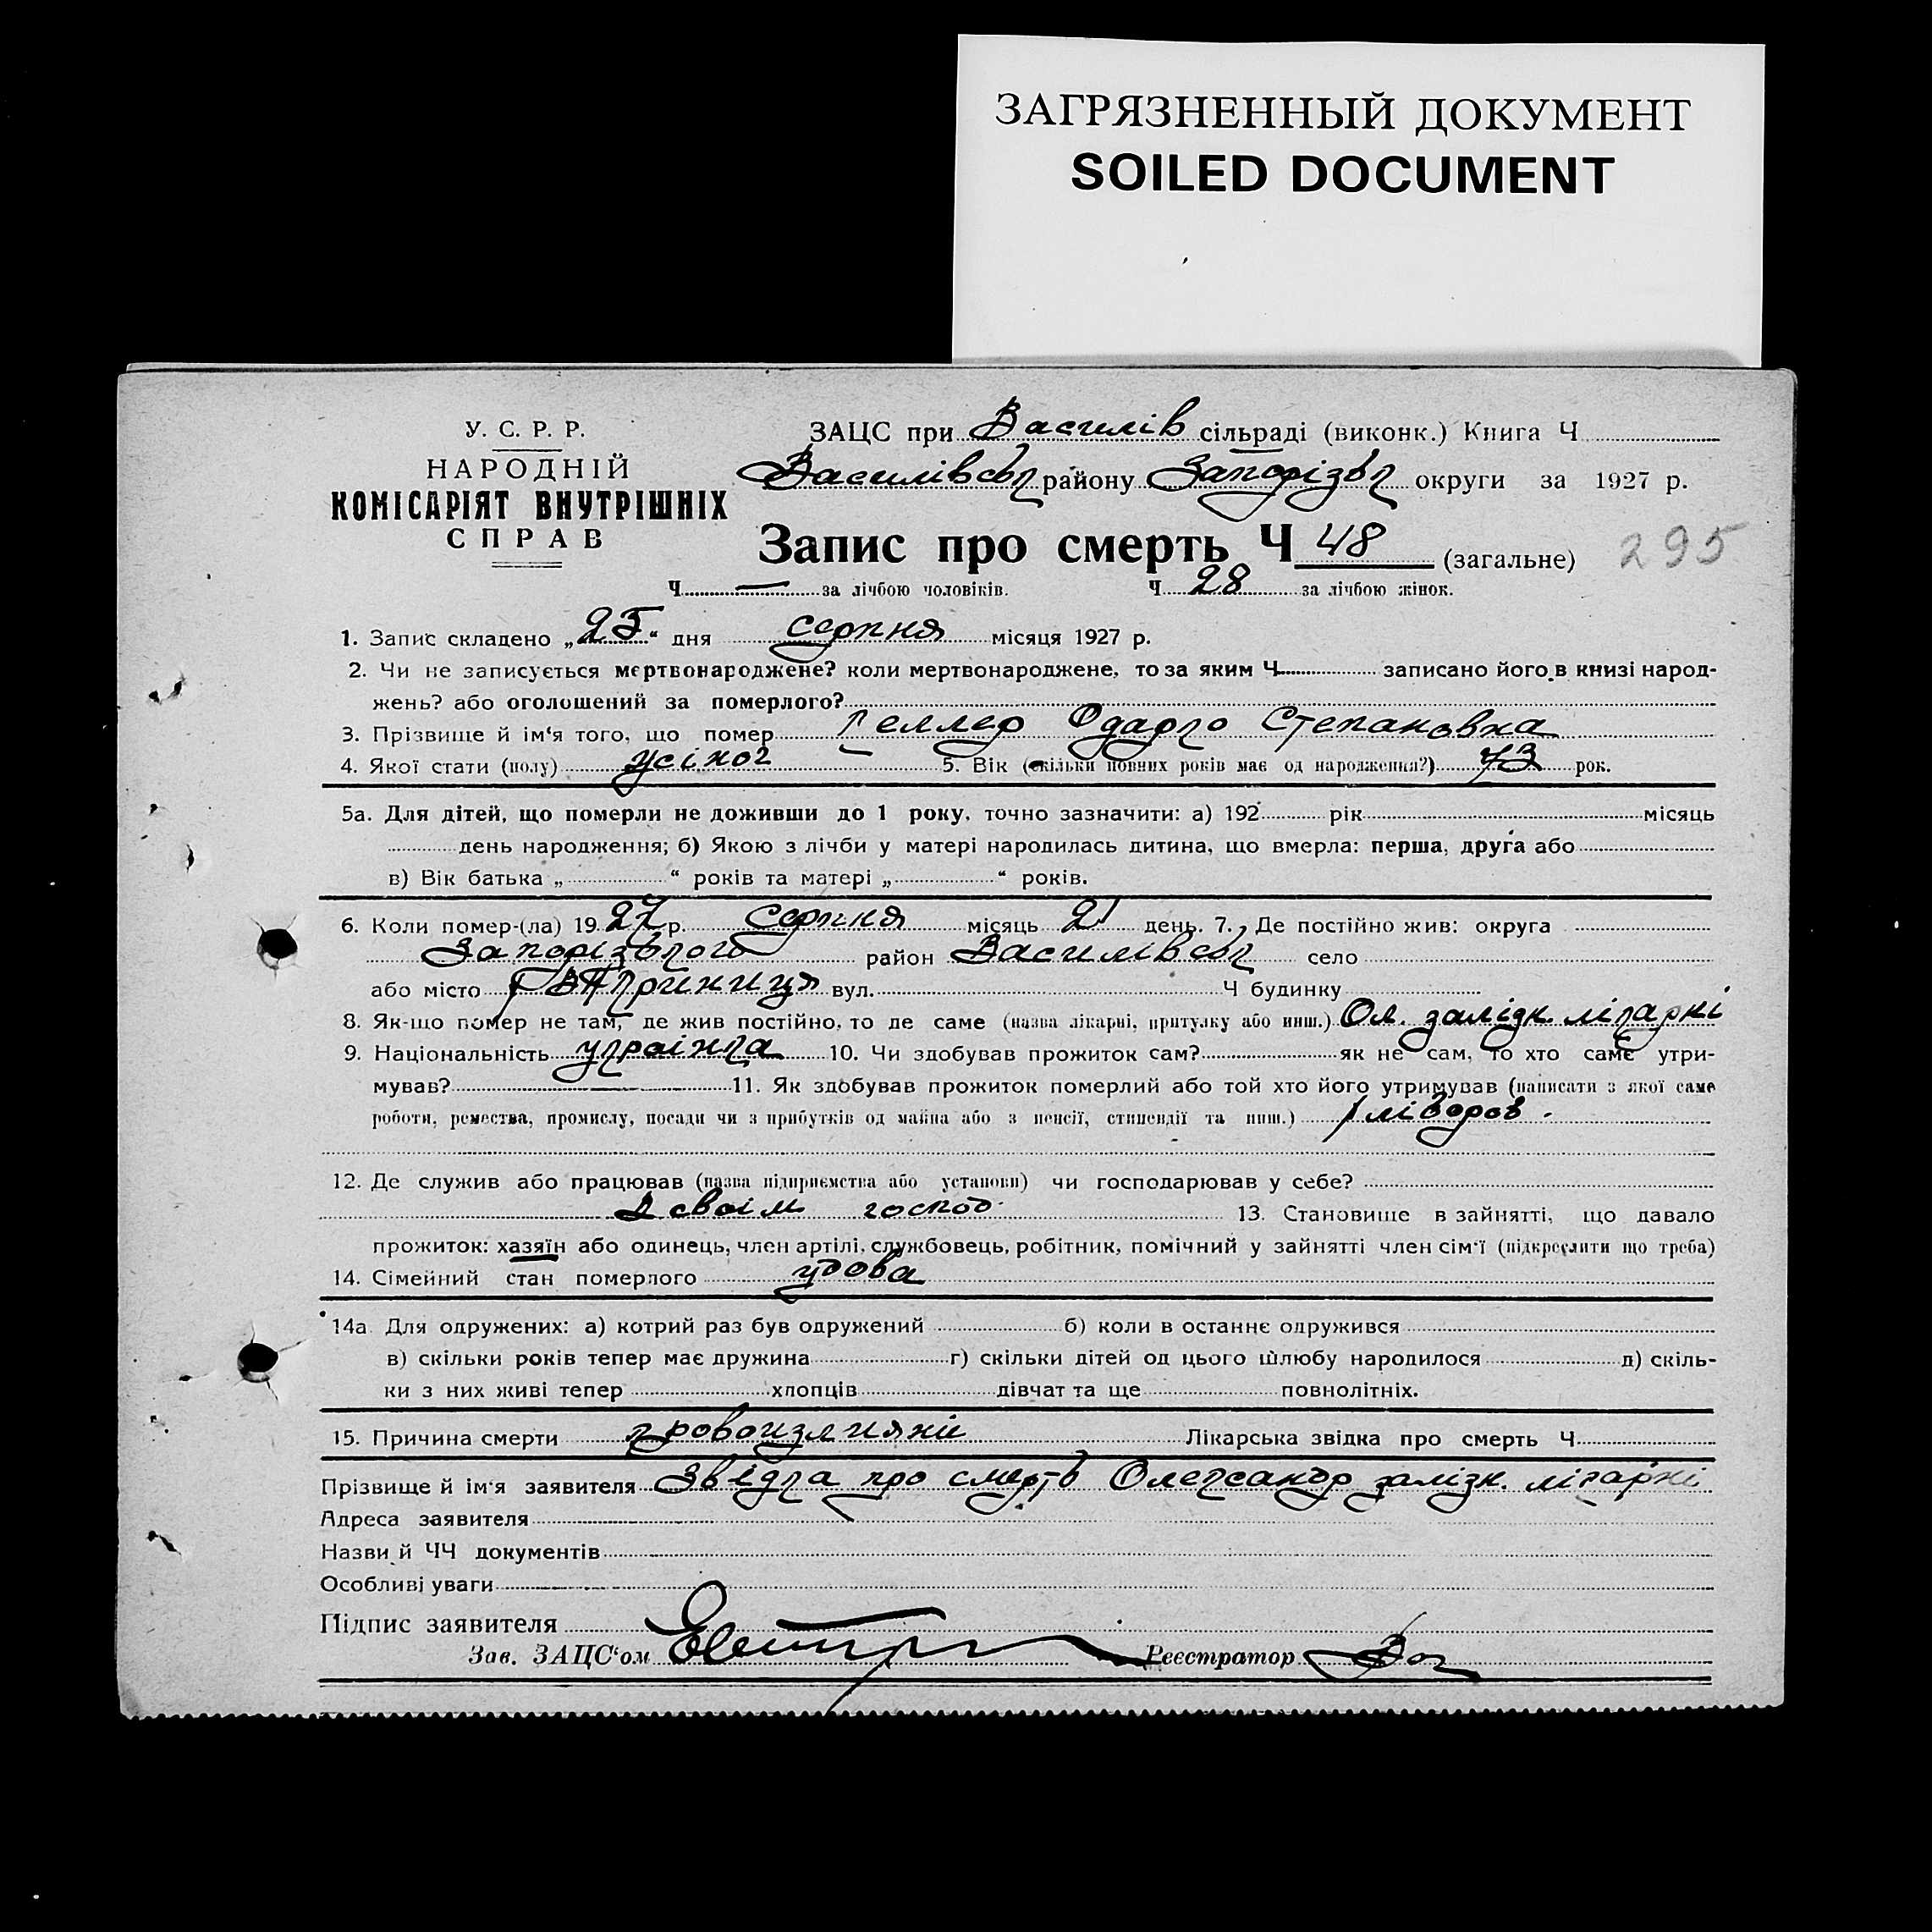 ЗАГРЯЗНЕННЫЙ ДОКУМЕНТ
SOILED DOCUMENT
У. С. Р. Р.
НАРОДНІЙ
КОМІСАРІЯТ ВНУТРІШНІХ
СПРАВ
ЗАЦС при Василів сільраді (виконк.) Книга Ч
Василівськ району Запорізьк округи за 1927 р.
Запис про смерть Ч 48 (загальне) 295
Ч — за лічбою чоловіків. Ч 28 за лічбою жінок.
1. Запис складено „25“ дня серпня місяця 1927 р.
2. Чи не записується мертвонароджене? коли мертвонароджене, то за яким Ч записано його в книзі народ-
жень? або оголошений за померлого?
3. Прізвище й ім'я того, що помер Геллер Одарко Степановна
4. Якої стати (полу) 5. Вік (скільки повних років має од народження?) 73 рок.
5а. Для дітей, що померли не доживши до 1 року, точно зазначити: а) 192 рік місяць
день народження; б) Якою з лічби у матері народилась дитина, що вмерла: перша, друга або
в) Вік батька „ “ років та матері „ “ років.
6. Коли помер-(ла) 1927 р. Серпня місяць 21 день. 7. Де постійно жив: округа
Запорізького район Василівськ село
або місто вул. Ч будинку
8. Як-що помер не там, де жив постійно, то де саме (назва лікарні, притулку або инш.) Ол. залізн. лікарні
9. Національність українка 10. Чи здобував прожиток сам? як не сам, то хто саме утри-
мував? 11. Як здобував прожиток померлий або той хто його утримував (написати з якої саме
роботи, ремества, промислу, посади чи з прибутків од майна або з пенсії, стипендії та инш.)
12. Де служив або працював (назва підприємства або установи) чи господарював у себе?
в своім господ. 13. Становище в зайнятті, що давало
прожиток: хазяїн або одинець, член артілі, службовець, робітник, помічний у зайнятті член сім'ї (підкреслити що треба)
14. Сімейний стан померлого удова
14а Для одружених: а) котрий раз був одружений б) коли в останнє одружився
в) скільки років тепер має дружина г) скільки дітей од цього шлюбу народилося д) скіль-
ки з них живі тепер хлопців дівчат та ще повнолітніх.
15. Причина смерти кровоизлияніе Лікарська звідка про смерть Ч
Прізвище й ім'я заявителя Звідка про смерть Олександр залізн. лікарні
Адреса заявителя
Назви й ЧЧ документів
Особливі уваги
Підпис заявителя
Зав. ЗАЦС'ом Реєстратор